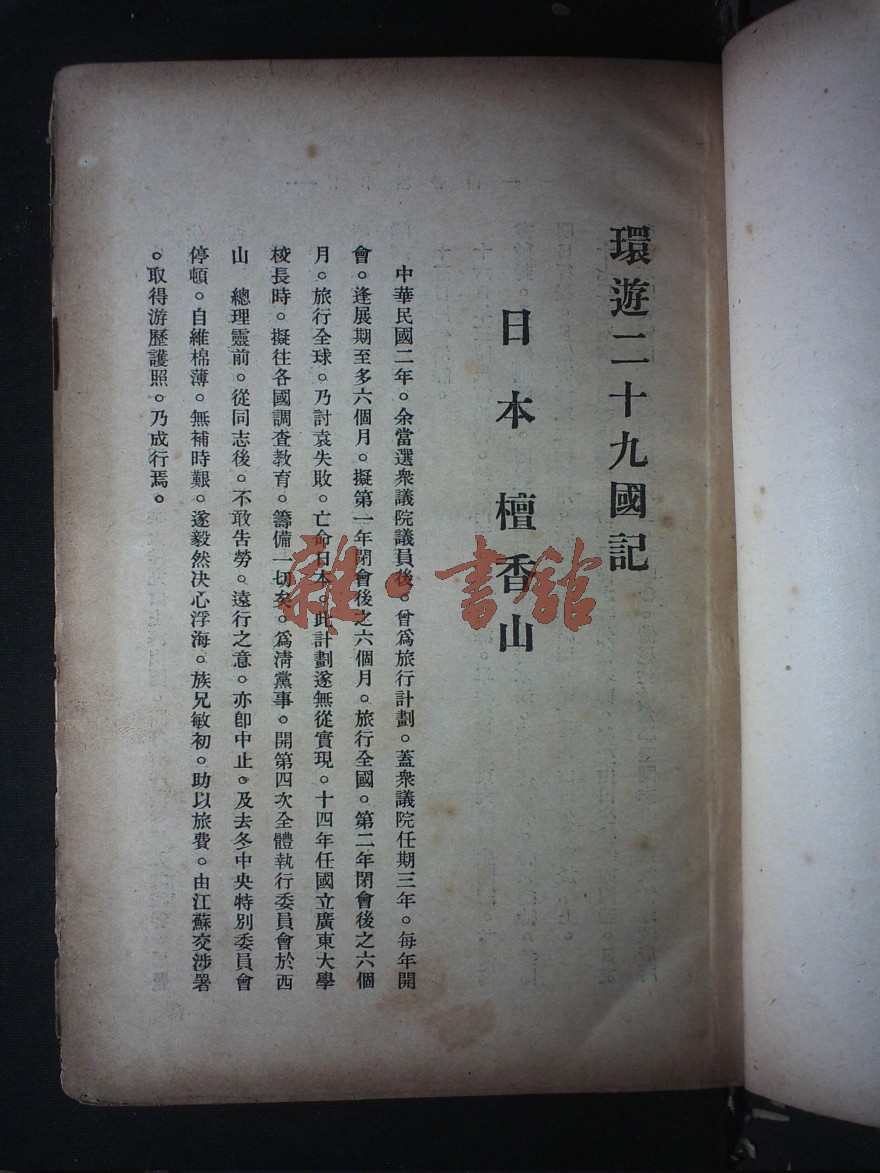 環遊二十九國記
日本 檀香山
中華民國二年。余當選衆議院議員後。曾爲旅行計劃。蓋衆議院任期三年。每年開
會。逢展期至多六個月。擬第一年閉會後之六個月。旅行全國。第二年閉會後之六個
月。旅行全球。乃討袁失敗。亡命日本。此計劃遂無從實現。十四年任國立廣東大學
校長時。擬往各國調查教育。籌備一切矣。爲淸黨事。開第四次全體執行委員會於西
山 總理靈前。從同志後。不敢告勞。遠行之意。亦卽中止。及去冬中央特別委員會
停頓。自維棉薄。無補時艱。遂毅然决心浮海。族兄敏初。助以旅費。由江蘇交涉署
。取得游歷護照。乃成行焉。
雜·書館